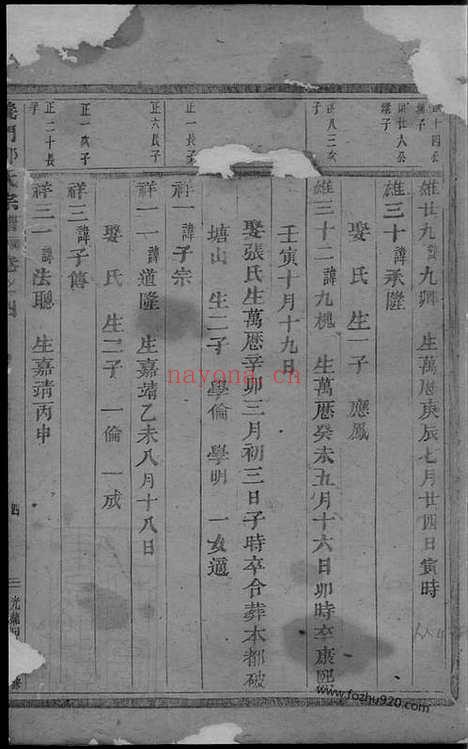 雄廿九諱九卿 生萬厯庚辰七月廿四日寅時
雄三十諱承隆
娶 氏 生一子 應鳳
正八三女
雄三十二諱九槐 生萬厯癸未五月十六日卯時卒康熙
壬寅十月十九日
娶張氏生萬厯辛卯三月初三日子時卒合葬本都破
塘山 生二子 學倫 學明 一女適
正一長子
祥一諱子宗
正六長子
祥二一諱道隆 生嘉靖乙未八月十八日
娶 氏 生二子 一倫 一成
正一次子
祥三諱子傳
正二十長子
祥三一諱法聰 生嘉靖丙申
氏宗譜卷之四
四
nayona.cn
www.fozhu920.com